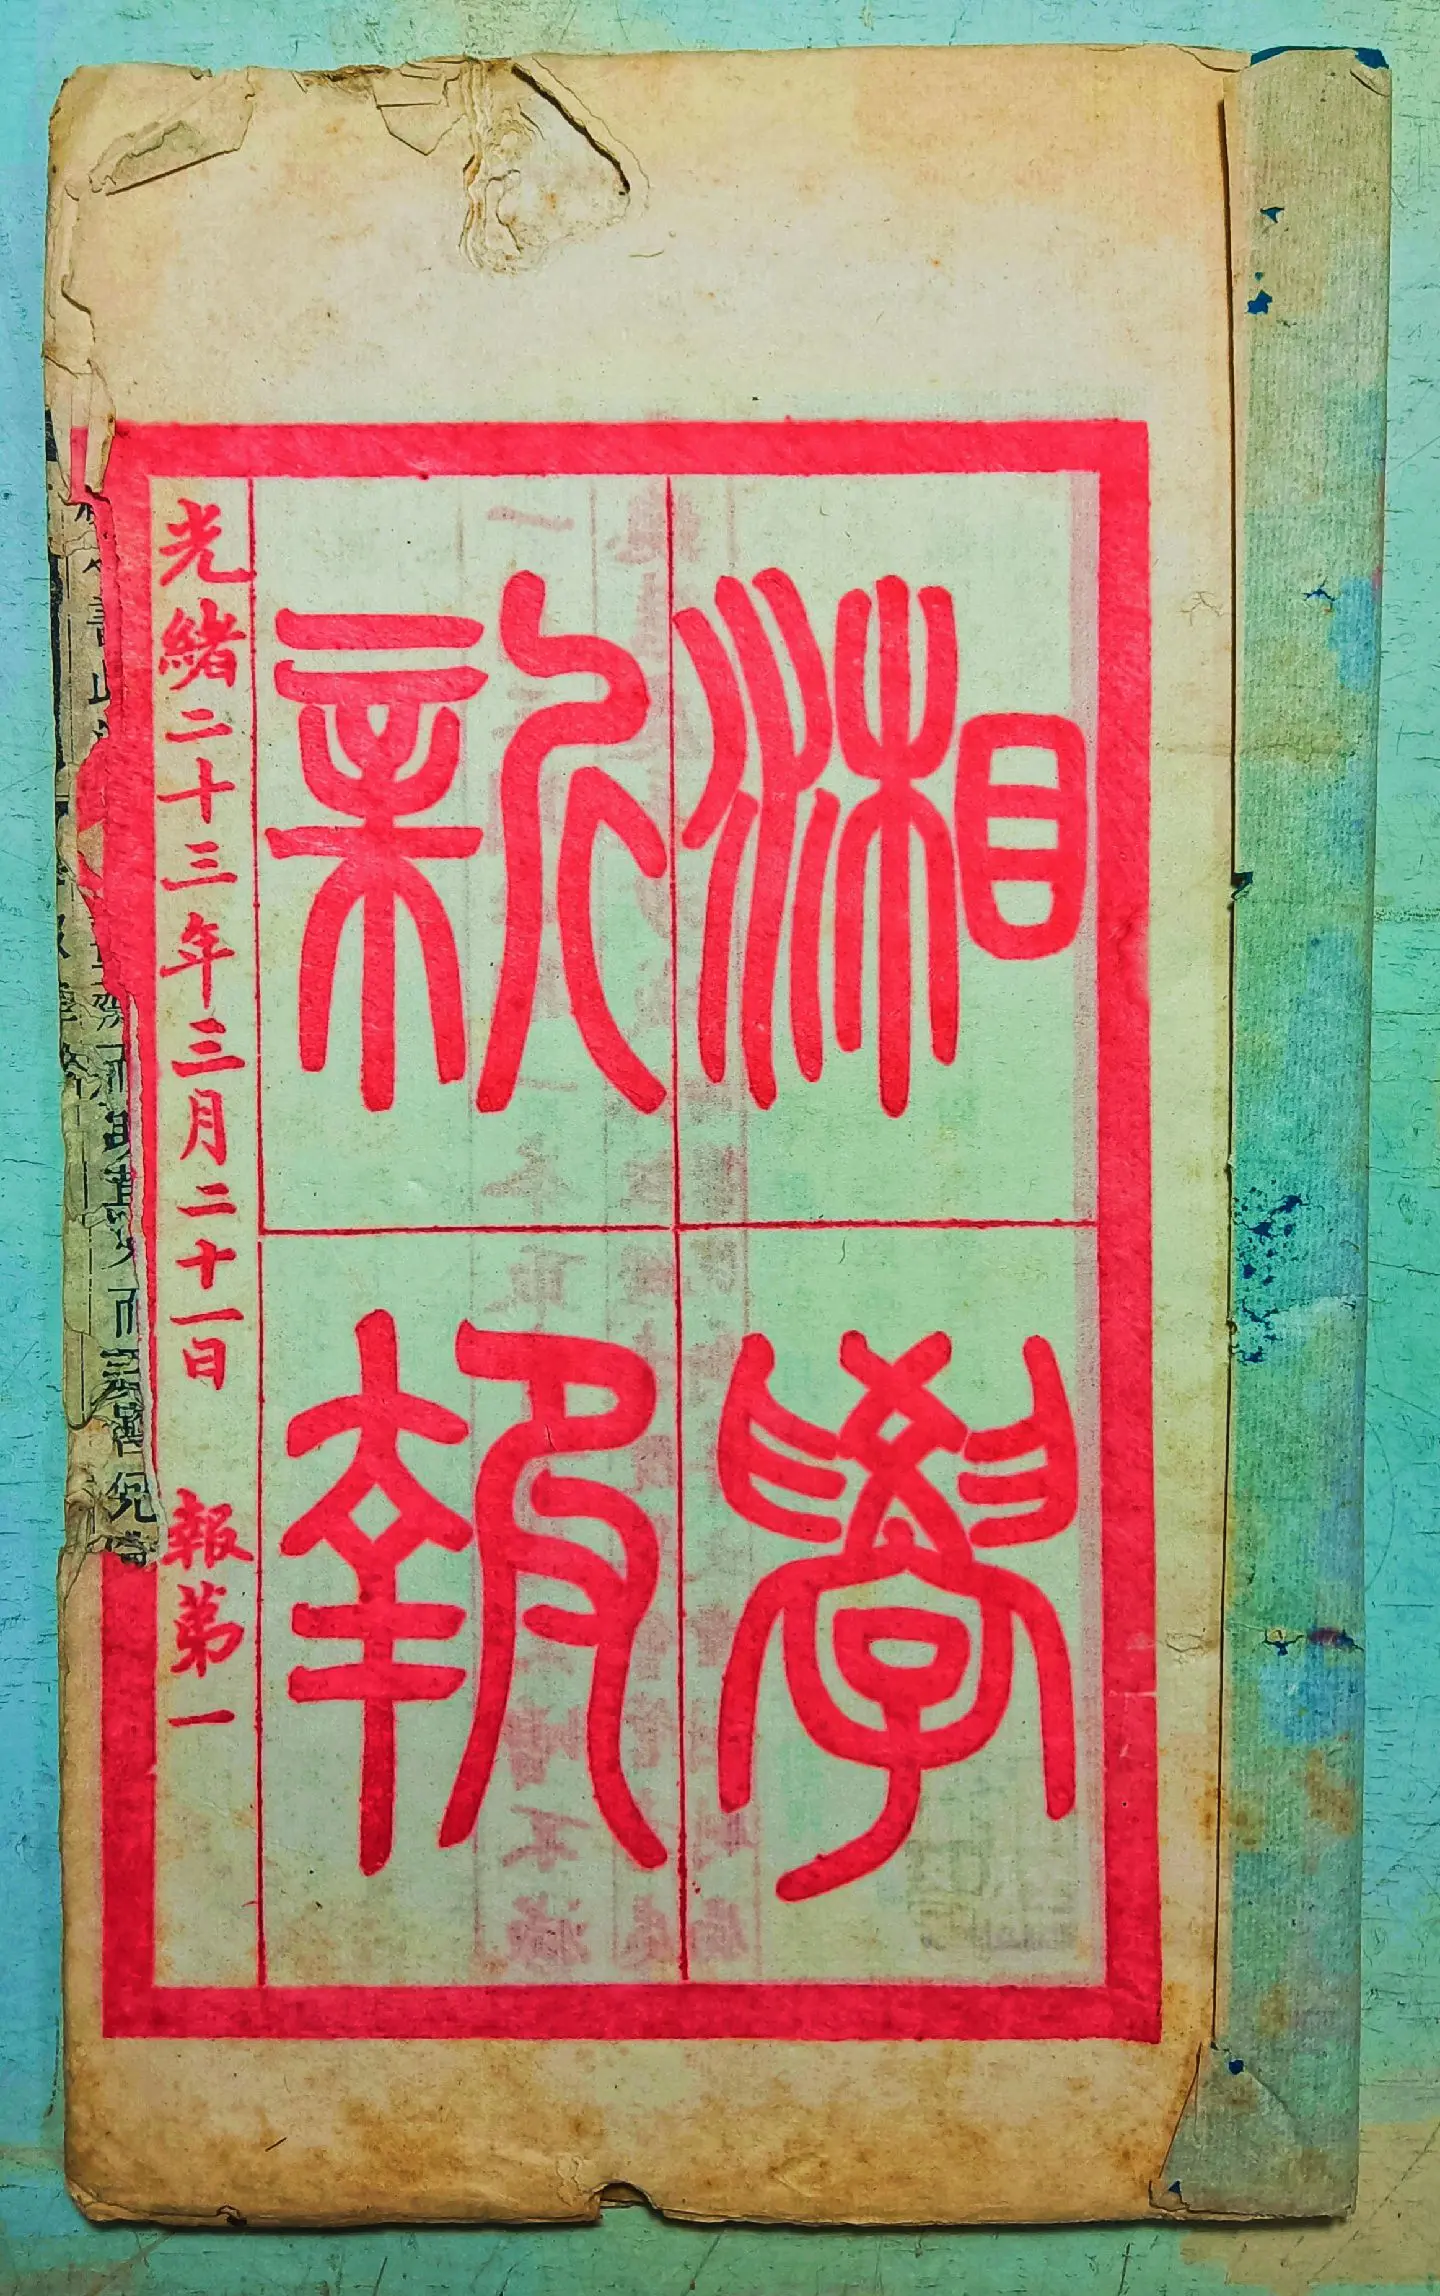 湘學
新報
光緒二十三年三月二十一日 報第一